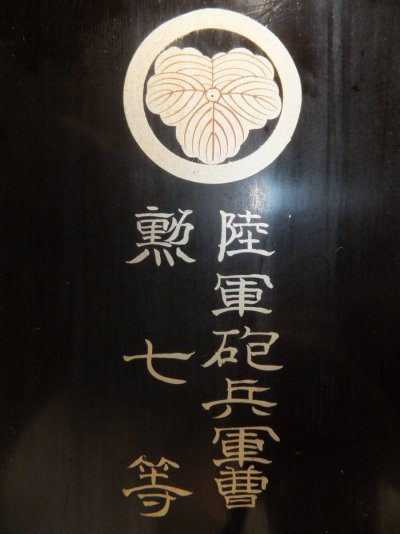 陸軍砲兵軍曹
勲七等